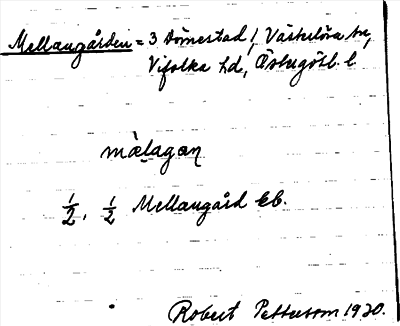 Mellangården = 3 Dömestad /, Västerlösa sn,
Vifolka hd, Östergötl. l.
mælagan
1/2, 1/2 Mellangård Eb.
Robert Pettersson 1920.